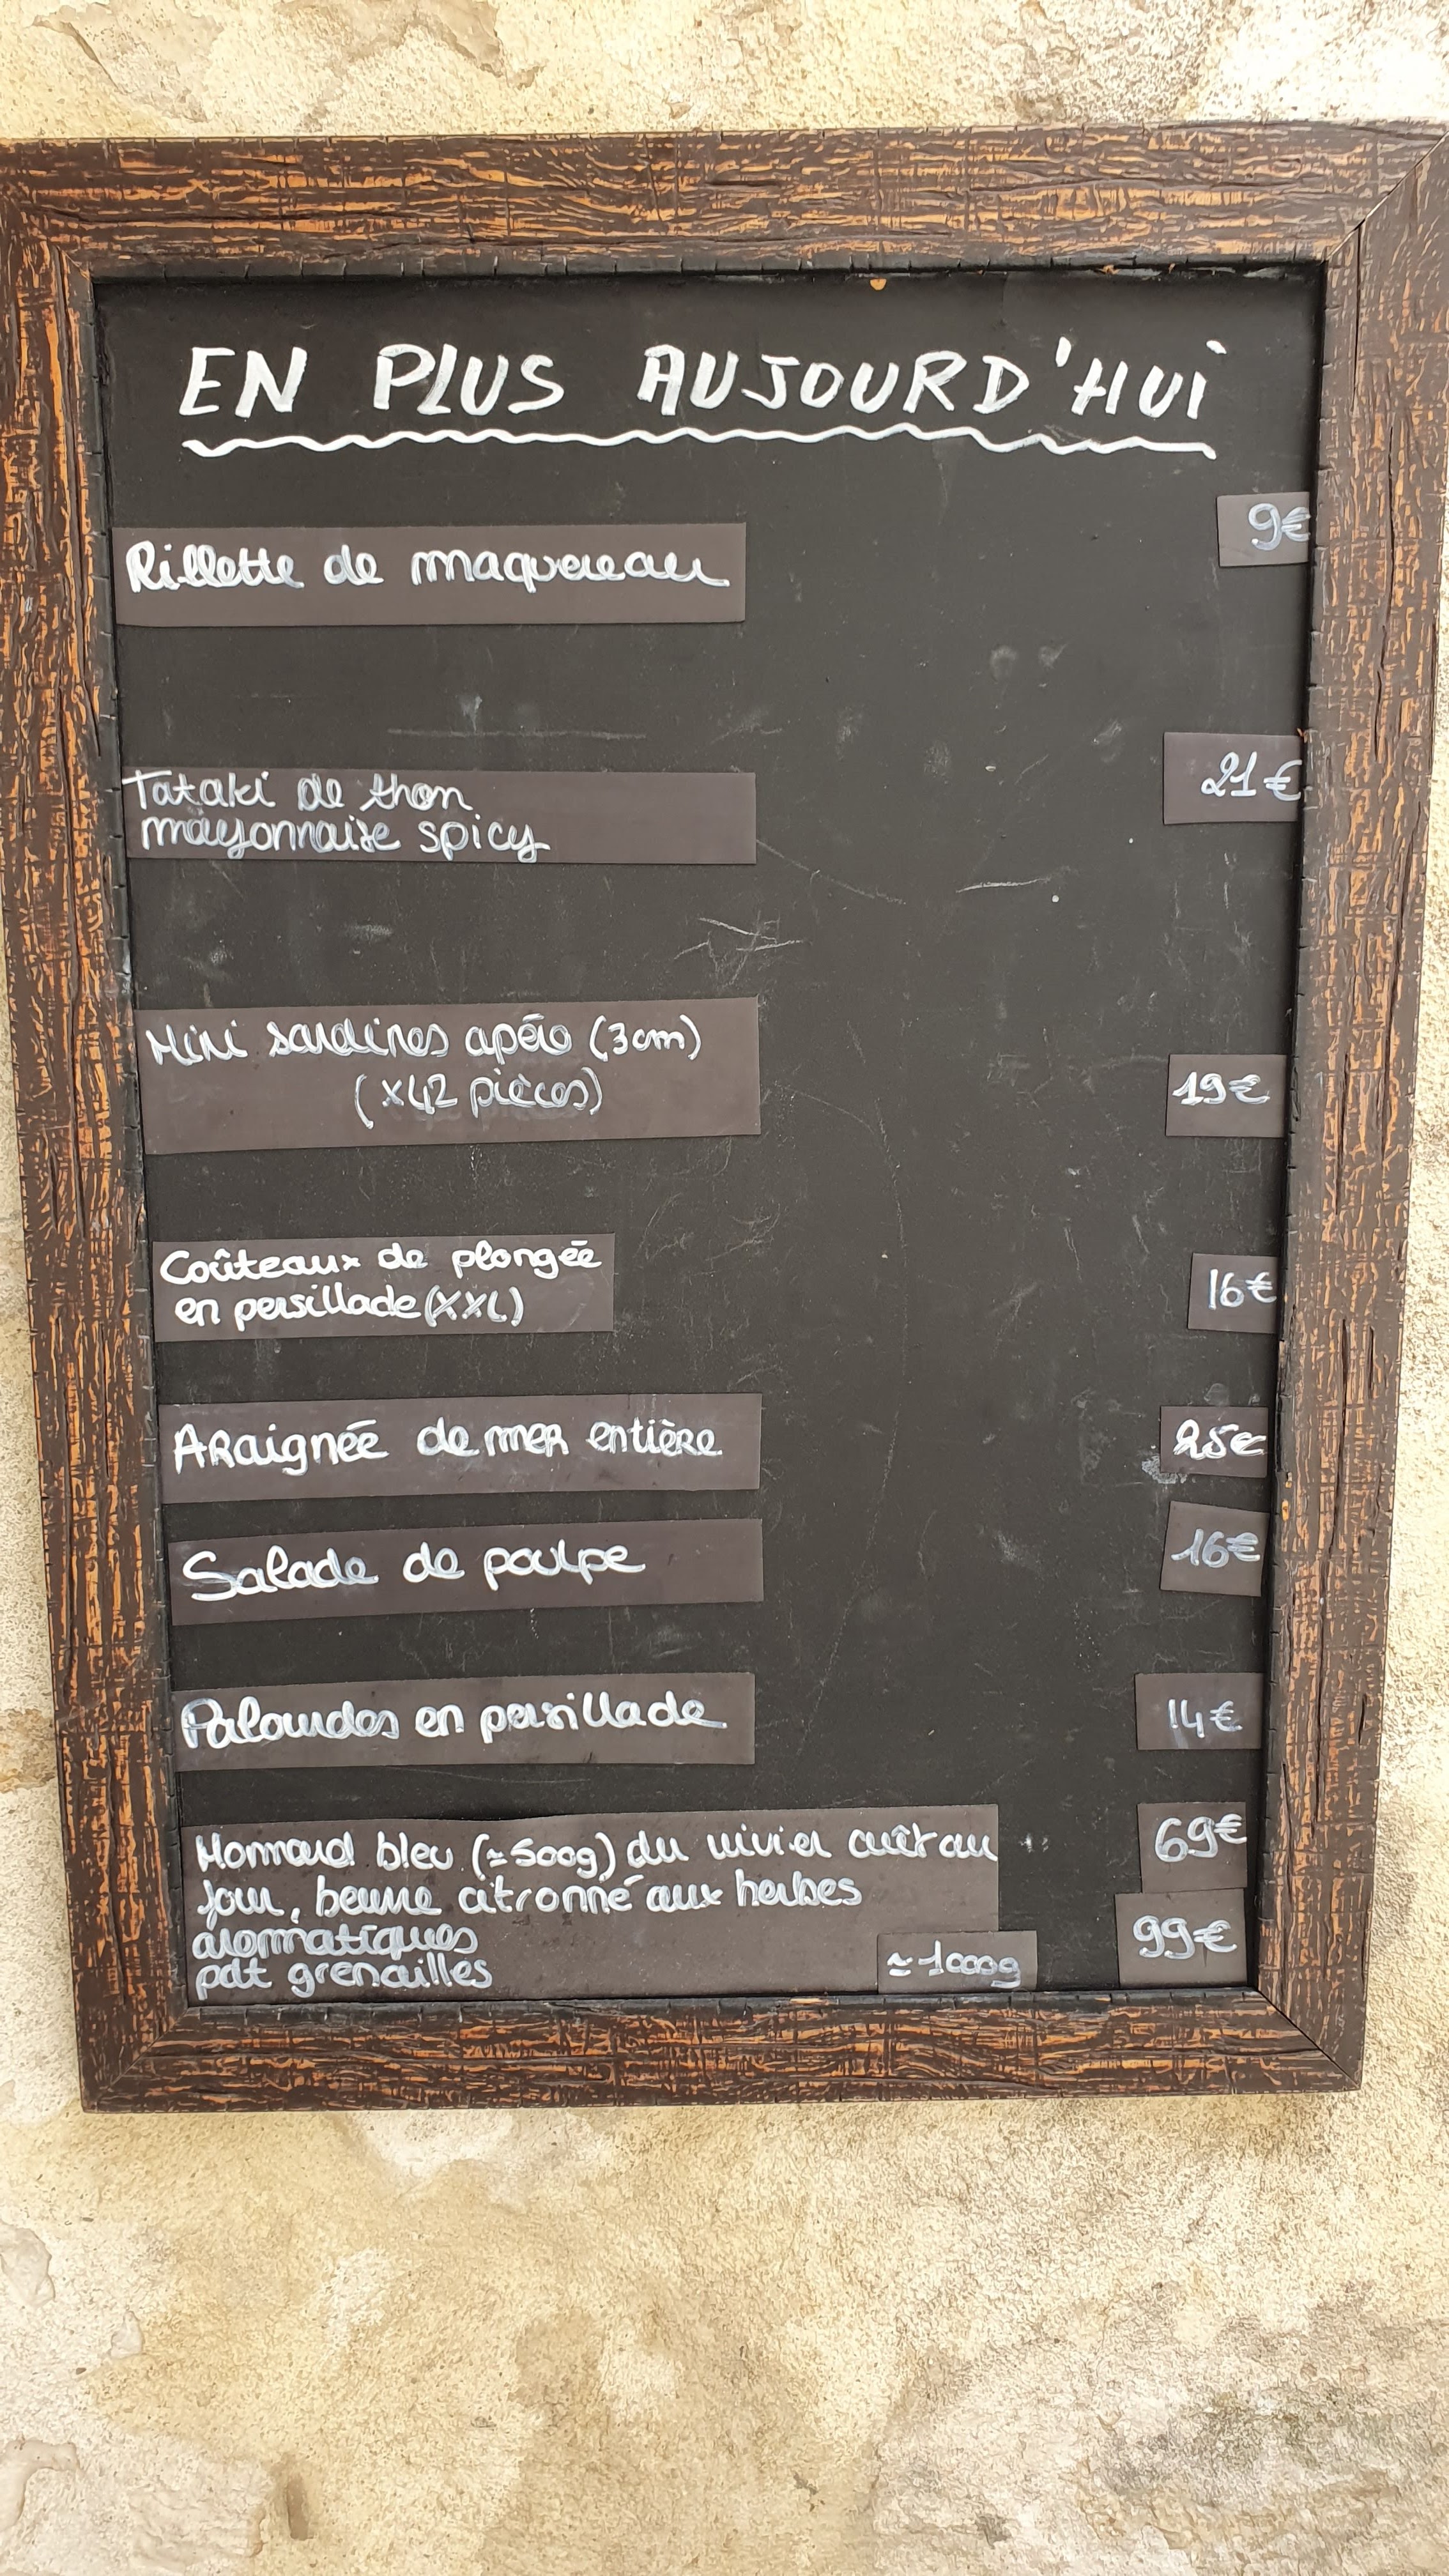 EN PLUS AUJOURD'HUI
Rillette de maquereau 9€
Tataki de thon 21€
mayonnaise spicy
Mini sardines apéro (3cm)
(x42 pièces) 19€
Coûteaux de plongée 16€
en persillade (XXL)
Araignée de mer entière 25€
Salade de poulpe 16€
Palourdes en persillade 14€
Hommard bleu (≃500g) du vivier cuît au 69€
jour, beurre citronné aux herbes
aromatiques 99€
pdt grenailles ≃1000g